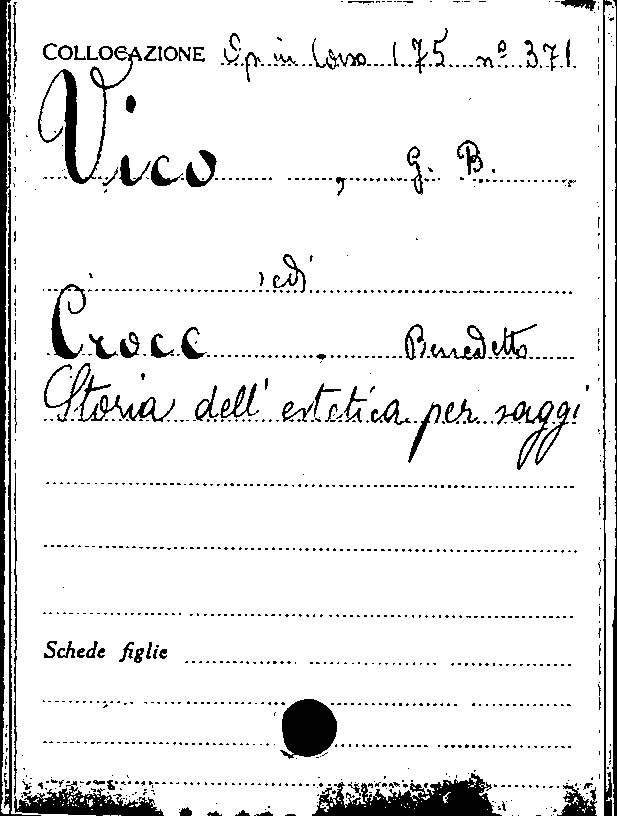 COLLOCAZIONE Op in Corso 175 nº 371
Vico, G. B.
vedi
Croce, Benedetto
Storia dell' estetica per saggi
Schede figlie